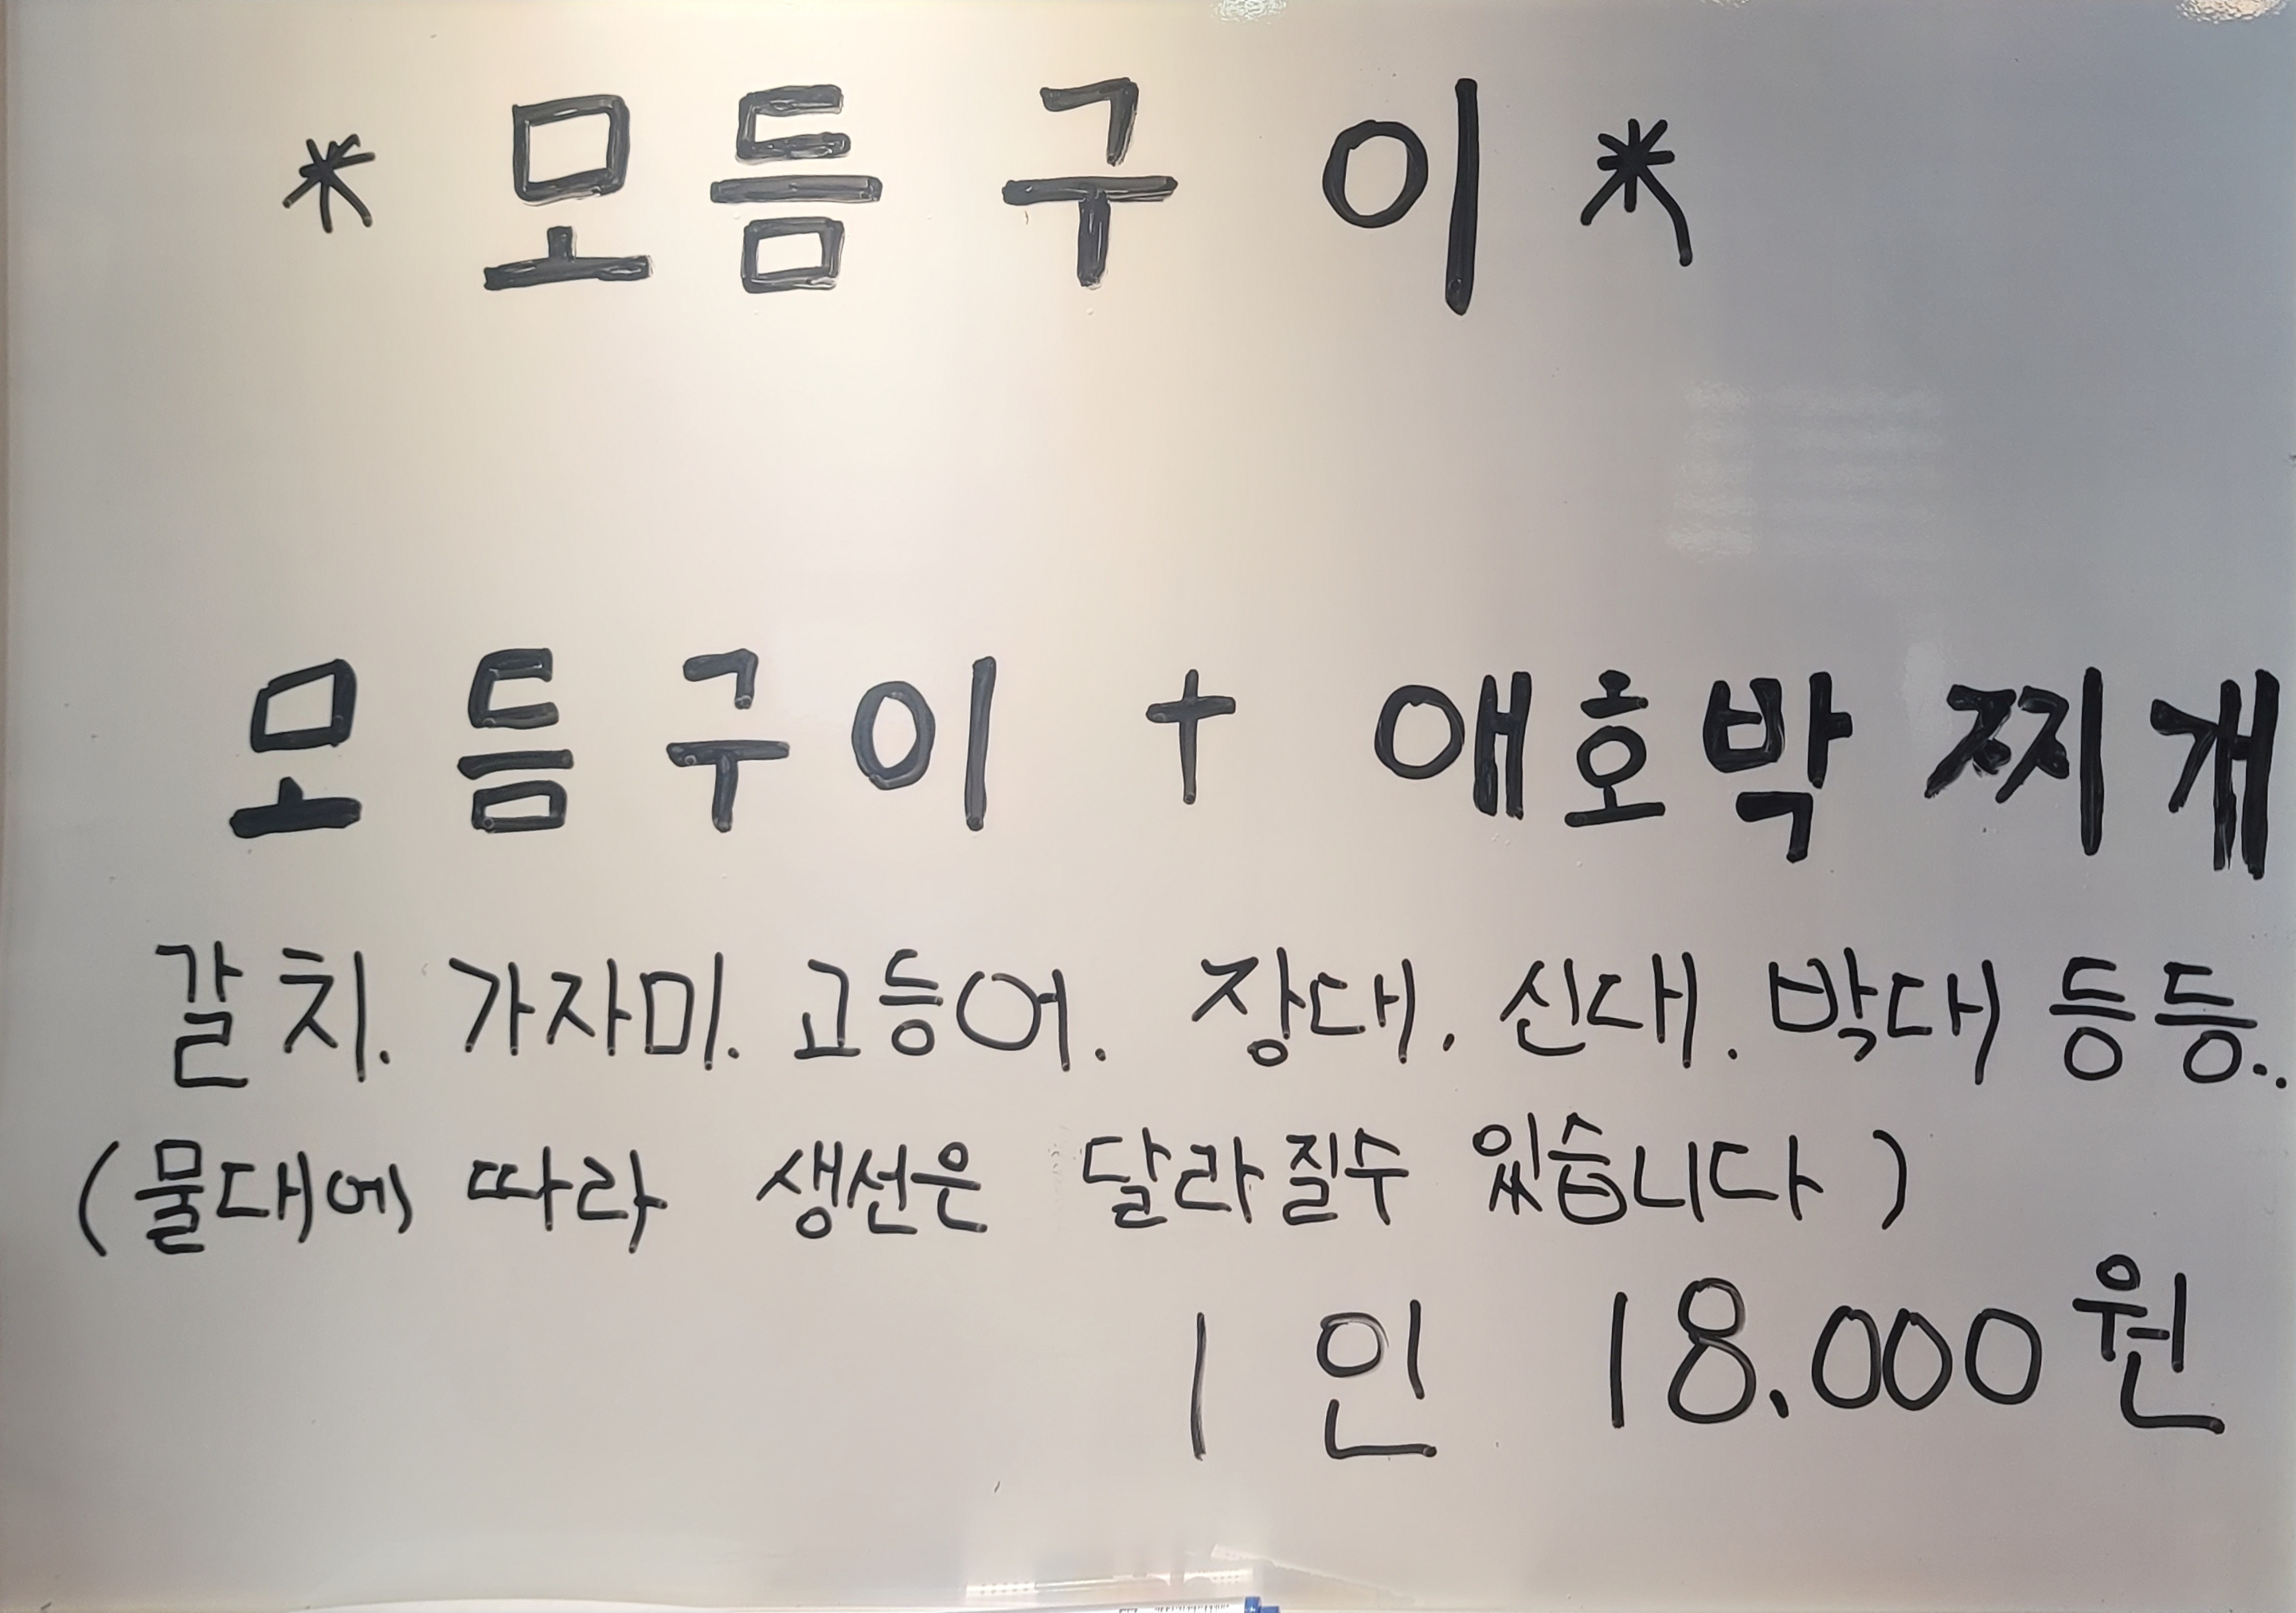 * 모듬구이 *
모듬구이 + 애호박 찌개
갈치. 가자미. 고등어. 장대. 신대. 박대 등등..
(물대에 따라 생선은 달라질수 있습니다)
1인 18.000원